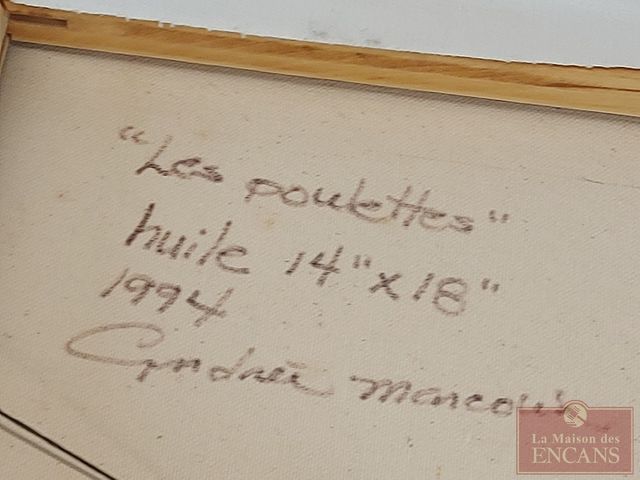 "Les poulettes"
huile 14" x 18"
1994
Andrée Marcoux
La Maison des
ENCANS